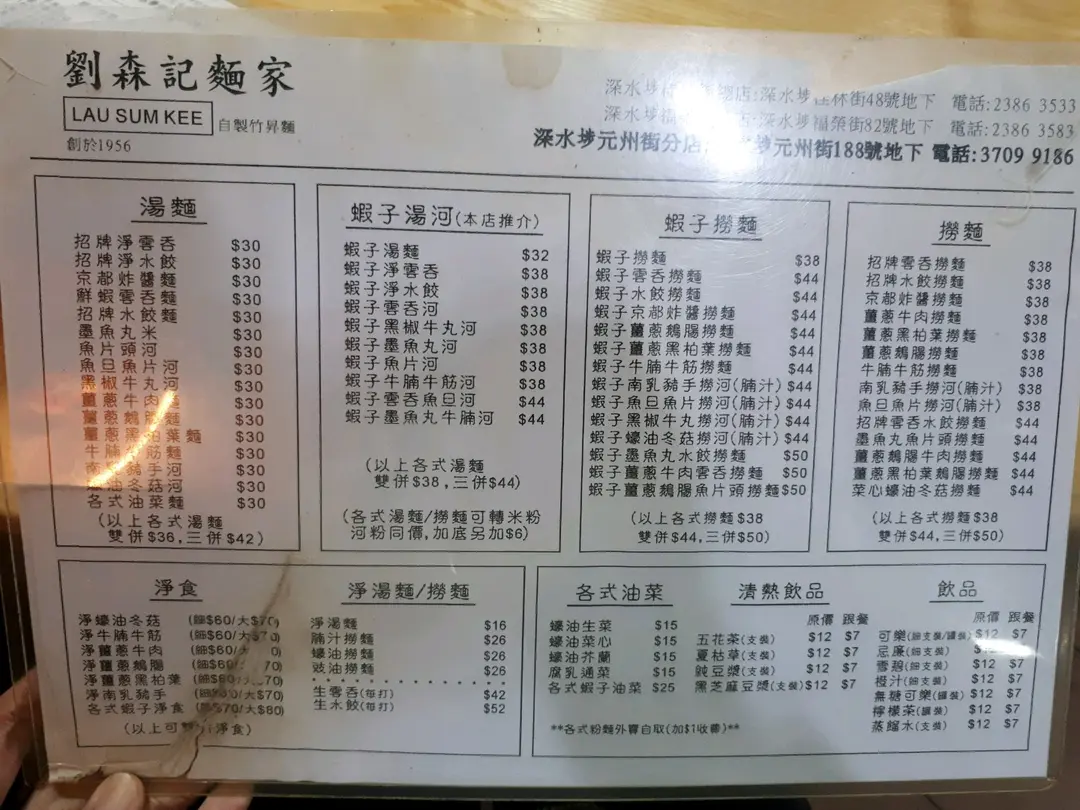 劉森記麵家
LAU SUM KEE 自製竹昇麵
創於1956
深水埗 店:深水埗桂林街48號地下 電話:2386 3533
深水埗 店:深水埗福榮街82號地下 電話:2386 3583
深水埗元州街分店: 埗元州街188號地下 電話:3709 9186
湯麵
招牌淨雲吞 $30
招牌淨水餃 $30
京都炸醬麵 $30
鮮蝦雲吞麵 $30
招牌水餃麵 $30
墨魚丸米 $30
魚片頭河 $30
魚旦魚片河 $30
黑椒牛丸河 $30
薑蔥牛肉麵 $30
薑蔥鵝腸麵 $30
薑蔥黑柏葉麵 $30
牛腩牛筋麵 $30
南乳豬手河 $30
蠔油冬菇河 $30
各式油菜麵 $30
(以上各式湯麵
雙併$36,三併$42)
蝦子湯河(本店推介)
蝦子湯麵 $32
蝦子淨雲吞 $38
蝦子淨水餃 $38
蝦子雲吞河 $38
蝦子黑椒牛丸河 $38
蝦子墨魚丸河 $38
蝦子魚片河 $38
蝦子牛腩牛筋河 $38
蝦子雲吞魚旦河 $44
蝦子墨魚丸牛腩河 $44
(以上各式湯麵
雙併$38,三併$44)
(各式湯麵/撈麵可轉米粉
河粉同價,加底另加$6)
蝦子撈麵
蝦子撈麵 $38
蝦子雲吞撈麵 $44
蝦子水餃撈麵 $44
蝦子京都炸醬撈麵 $44
蝦子薑蔥鵝腸撈麵 $44
蝦子薑蔥黑柏葉撈麵 $44
蝦子牛腩牛筋撈麵 $44
蝦子南乳豬手撈河(腩汁) $44
蝦子魚旦魚片撈河(腩汁) $44
蝦子黑椒牛丸撈河(腩汁) $44
蝦子蠔油冬菇撈河(腩汁) $44
蝦子墨魚丸水餃撈麵 $50
蝦子薑蔥牛肉雲吞撈麵 $50
蝦子薑蔥鵝腸魚片頭撈麵 $50
(以上各式撈麵$38
雙併$44,三併$50)
撈麵
招牌雲吞撈麵 $38
招牌水餃撈麵 $38
京都炸醬撈麵 $38
薑蔥牛肉撈麵 $38
薑蔥黑柏葉撈麵 $38
薑蔥鵝腸撈麵 $38
牛腩牛筋撈麵 $38
南乳豬手撈河(腩汁) $38
魚旦魚片撈河(腩汁) $38
招牌雲吞水餃撈麵 $44
墨魚丸魚片頭撈麵 $44
薑蔥鵝腸牛肉撈麵 $44
薑蔥黑柏葉鵝腸撈麵 $44
菜心蠔油冬菇撈麵 $44
(以上各式撈麵$38
雙併$44,三併$50)
淨食
淨蠔油冬菇 (細$60/大$70)
淨牛腩牛筋 (細$60/大$70)
淨薑蔥牛肉 (細$60/ 0)
淨薑蔥鵝腸 (細$60/ 70)
淨薑蔥黑柏葉 (細$60/ $70)
淨南乳豬手 (細$60/大$70)
各式蝦子淨食 (細$70/大$80)
(以上可 淨食)
淨湯麵/撈麵
淨湯麵 $16
腩汁撈麵 $26
蠔油撈麵 $26
豉油撈麵 $26
生雲吞(每打) $42
生水餃(每打) $52
各式油菜
蠔油生菜 $15
蠔油菜心 $15
蠔油芥蘭 $15
腐乳通菜 $15
各式蝦子油菜 $25
清熱飲品
原價 跟餐
五花茶(支裝) $12 $7
夏枯草(支裝) $12 $7
豌豆漿(支裝) $12 $7
黑芝麻豆漿(支裝) $12 $7
飲品
原價 跟餐
可樂(細支裝/罐裝) $12 $7
忌廉(細支裝) $12 $7
雪碧(細支裝) $12 $7
橙汁(細支裝) $12 $7
無糖可樂(罐裝) $12 $7
檸檬茶(罐裝) $12 $7
蒸餾水(支裝) $12 $7
**各式粉麵外賣自取(加$1收費)**